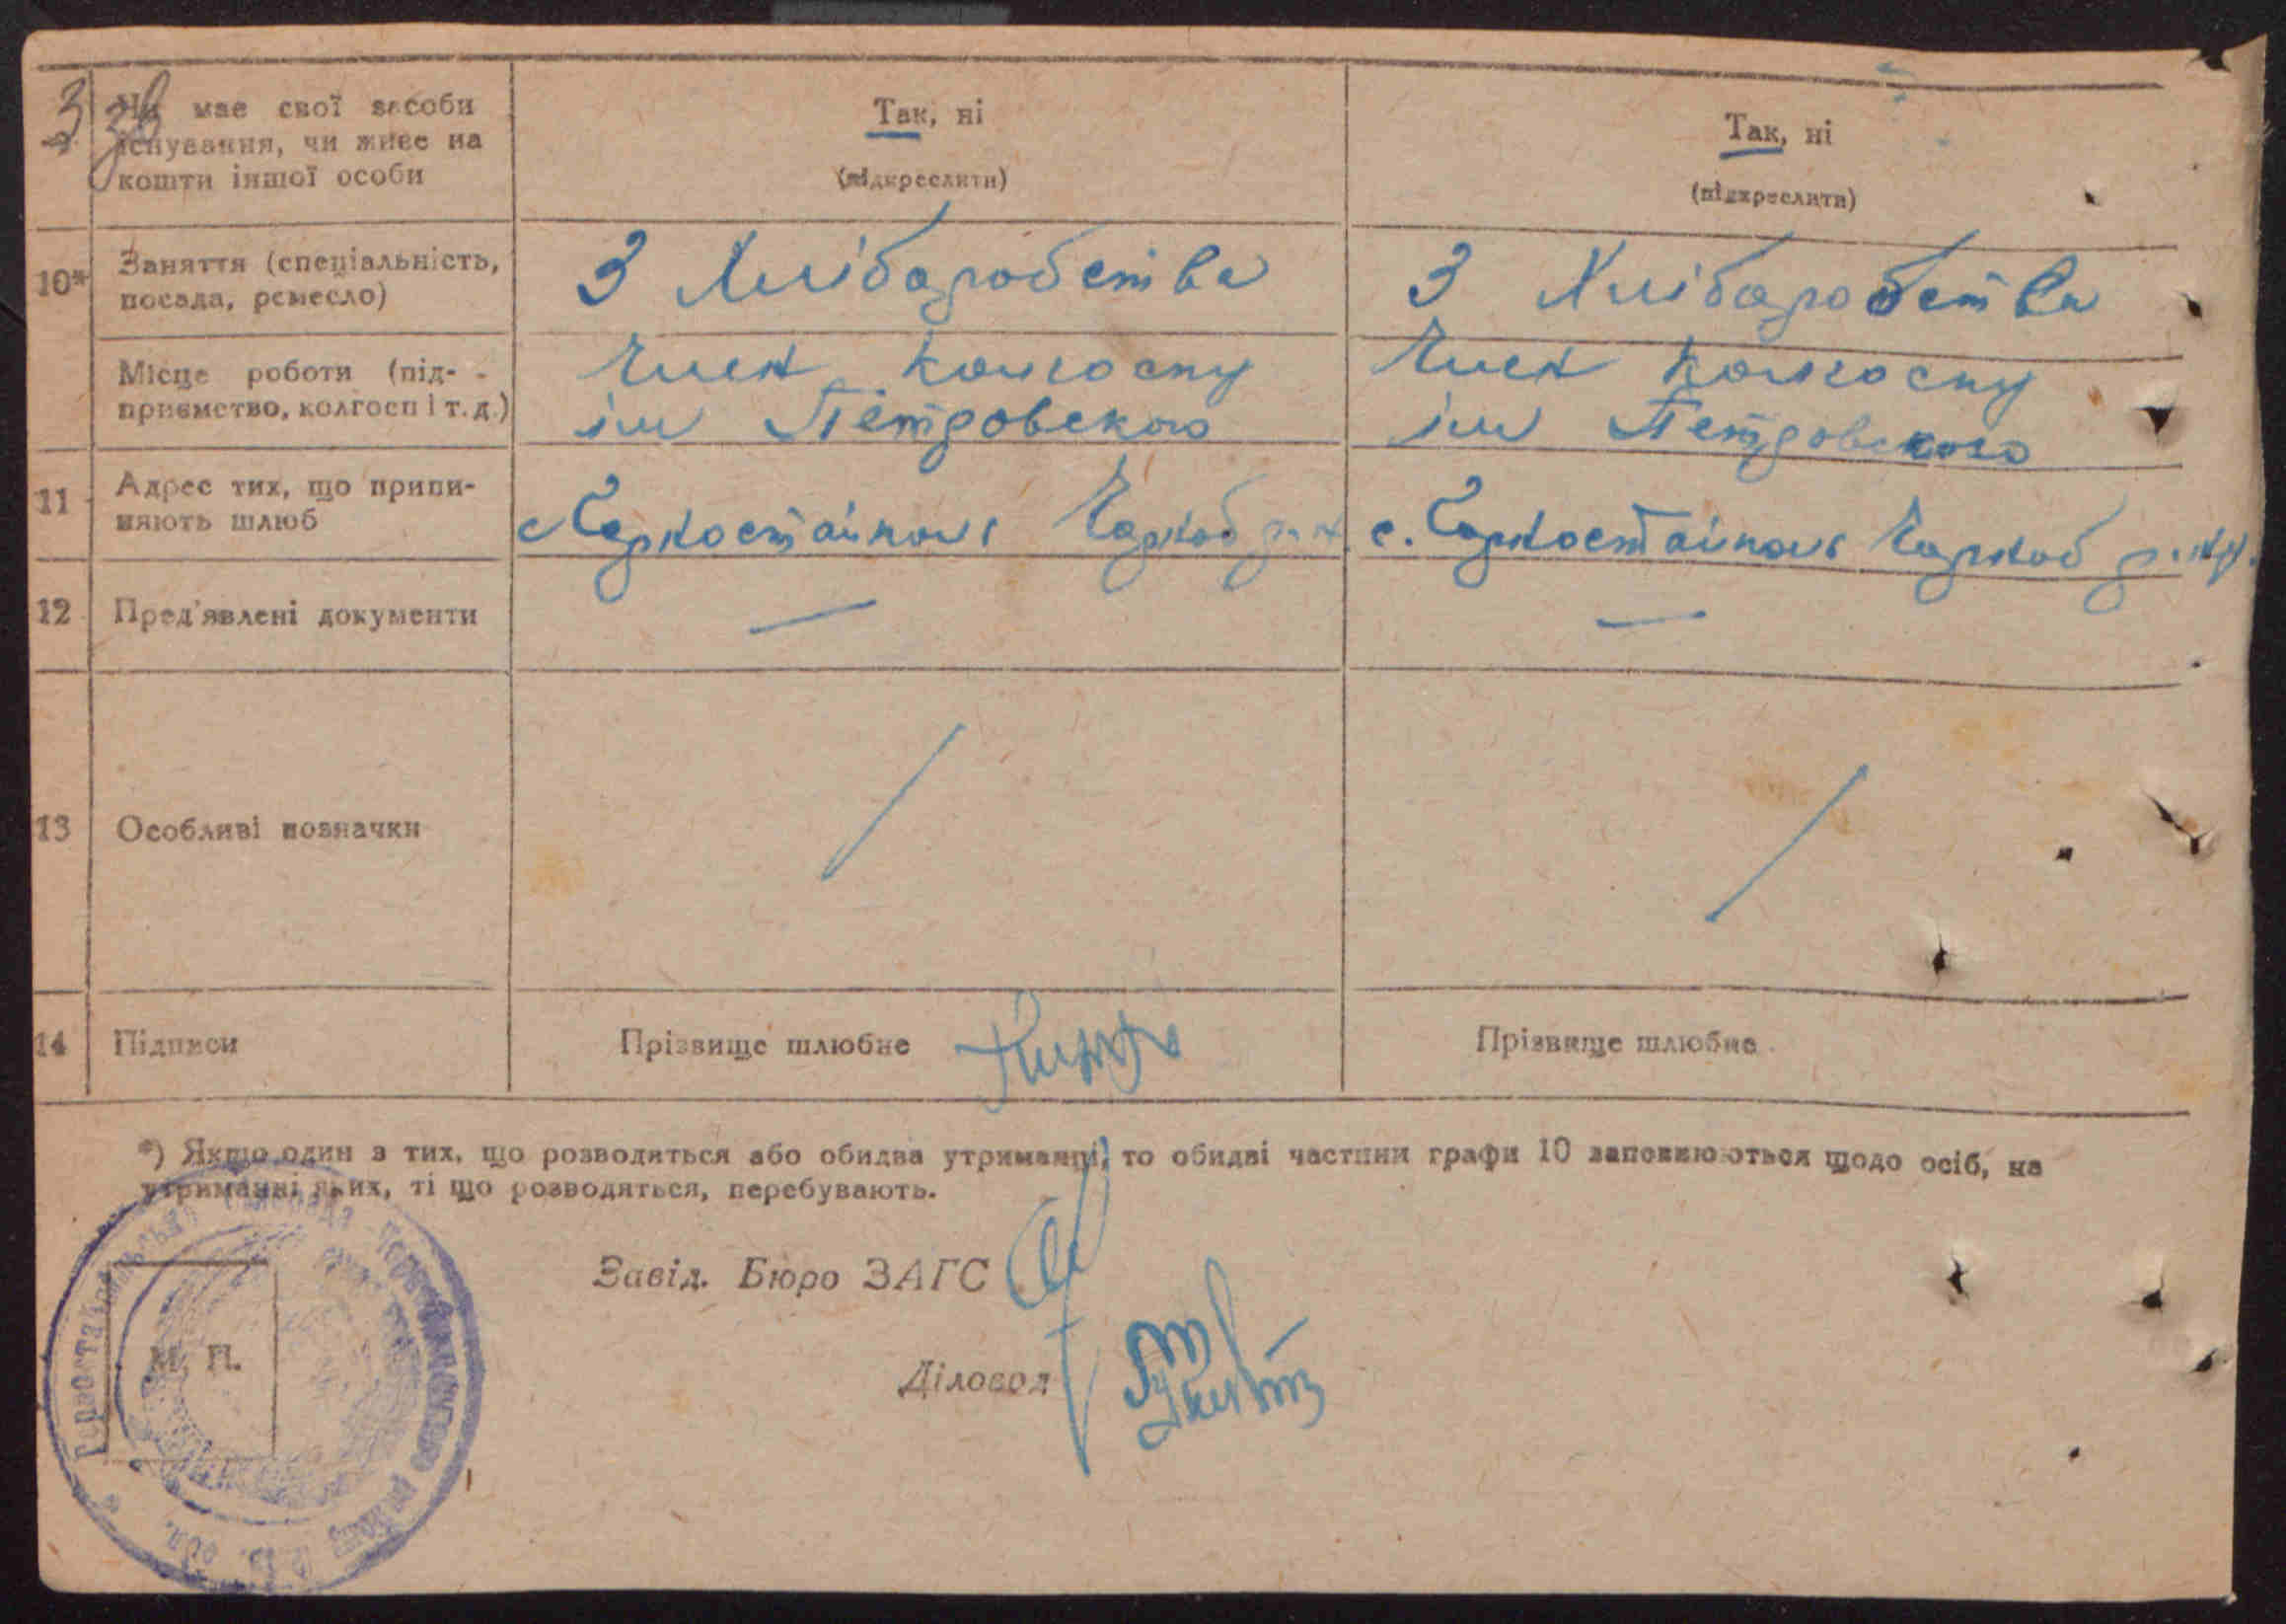 3 зв
Чи має свої засоби
існування, чи живе на
кошти іншої особи
Так, ні
(підкреслити)
Так, ні
(підкреслити)
10*
Заняття (спеціальність,
посада, ремесло)
З Хліборобства
З Хліборобства
Місце роботи (під-
приємство, колгосп і т. д.)
Член колгоспу
ім Петровского
Член колгоспу
ім Петровского
11
Адрес тих, що припи-
няють шлюб
с
с.
12
Пред'явлені документи
—
—
13
Особливі позначки
14
Підписи
Прізвище шлюбне
Прізвище шлюбне
*) Якщо один з тих, що розводяться або обидва утриманці, то обидві частини графи 10 заповнюються щодо осіб, на
утриманні яких, ті що розводяться, перебувають.
Завід. Бюро ЗАГС
Діловод
М. П.